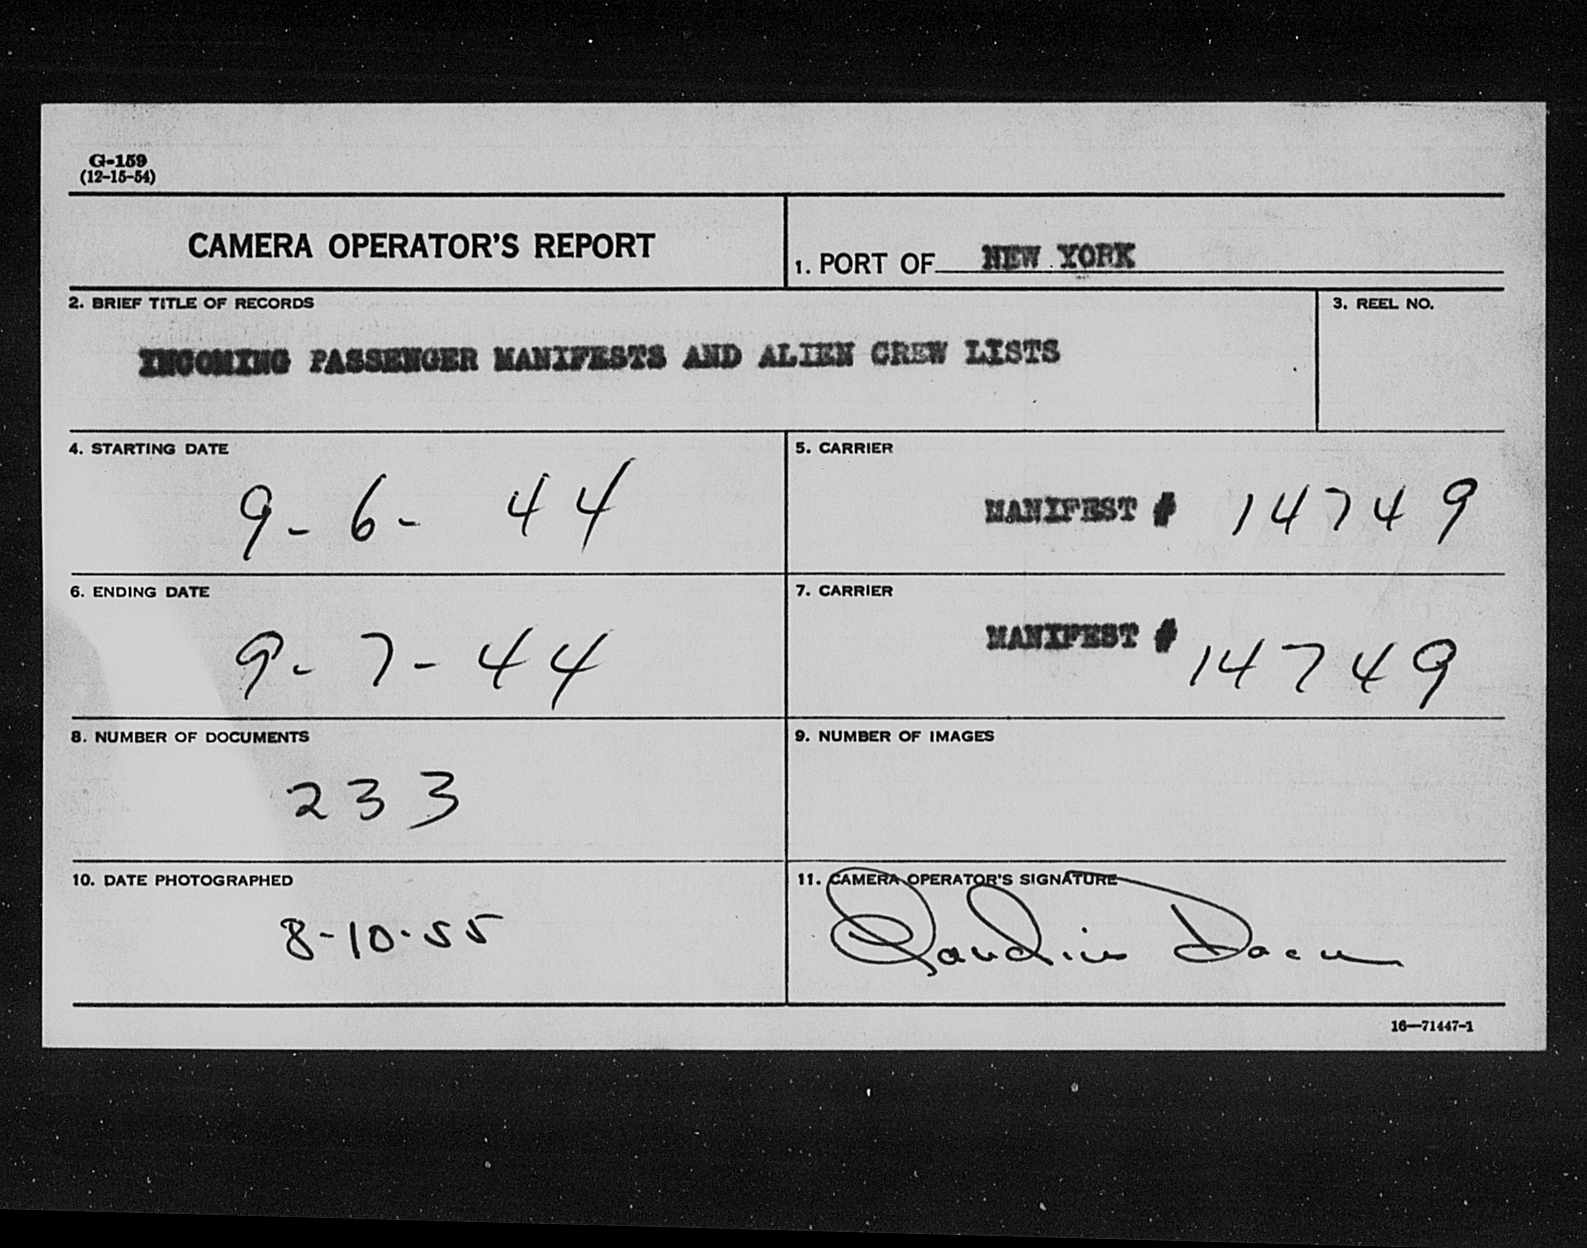 G-159
(12-15-54)
CAMERA OPERATOR'S REPORT
1. PORT OF NEW YORK
2. BRIEF TITLE OF RECORDS
3. REEL NO.
INCOMING PASSENGER MANIFESTS AND ALIEN CREW LISTS
4. STARTING DATE
5. CARRIER
9-6-44
MANIFEST # 14749
6. ENDING DATE
7. CARRIER
9-7-44
MANIFEST # 14749
8. NUMBER OF DOCUMENTS
9. NUMBER OF IMAGES
233
10. DATE PHOTOGRAPHED
11. CAMERA OPERATOR'S SIGNATURE
8-10-55
16—71447-1